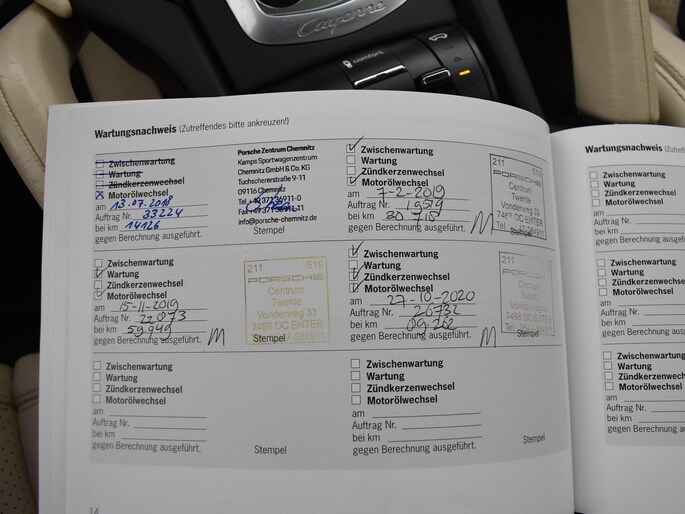 Cayenne
comfort
Wartungsnachweis (Zutreffendes bitte ankreuzen!)
Zwischenwartung
Wartung
Zündkerzenwechsel
Motorölwechsel
am 13.07.2018
Auftrag Nr. 33224
bei km 14126
gegen Berechnung ausgeführt.
Porsche Zentrum Chemnitz
Kamps Sportwagenzentrum
Chemnitz GmbH & Co. KG
Tuchschererstraße 9-11
09116 Chemnitz
info@porsche-chemnitz.de
Stempel
Zwischenwartung
Wartung
Zündkerzenwechsel
Motorölwechsel
am 7-2-2019
Auftrag Nr. 19519
bei km 30 718
gegen Berechnung ausgeführt.
M
211 519
PORSCHE
Centrum
Twente
Vonderweg 33
Stempel
Zwischenwartung
Wartung
Zündkerzenwechsel
Motorölwechsel
am 15-11-2019
Auftrag Nr. 22073
bei km 59.949
gegen Berechnung ausgeführt.
M
211 519
PORSCHE
Centrum
Twente
Vonderweg 33
7468 DC ENTER
Stempel
Zwischenwartung
Wartung
Zündkerzenwechsel
Motorölwechsel
am 27-10-2020
Auftrag Nr. 26732
bei km
gegen Berechnung ausgeführt.
M
211 519
PORSCHE
Centrum
Twente
Vonderweg 33
7468 DC ENTER
Stempel
Zwischenwartung
Wartung
Zündkerzenwechsel
Motorölwechsel
am
Auftrag Nr.
bei km
gegen Berechnung ausgeführt.
Stempel
Zwischenwartung
Wartung
Zündkerzenwechsel
Motorölwechsel
am
Auftrag Nr.
bei km
gegen Berechnung ausgeführt.
Stempel
14
Wartungsnachweis (Zutreffendes
Zwischenwartung
Wartung
Zündkerzenwechsel
Motorölwechsel
am
Auftrag Nr.
bei km
gegen Berechnung ausgeführt.
Zwischenwartung
Wartung
Zündkerzenwechsel
Motorölwechsel
am
Auftrag Nr.
bei km
gegen Berechnung ausgeführt.
Zwischenwartung
Wartung
Zündkerzenwechsel
Motorölwechsel
am
Auftrag Nr.
bei km
gegen Berechnung ausgeführt.